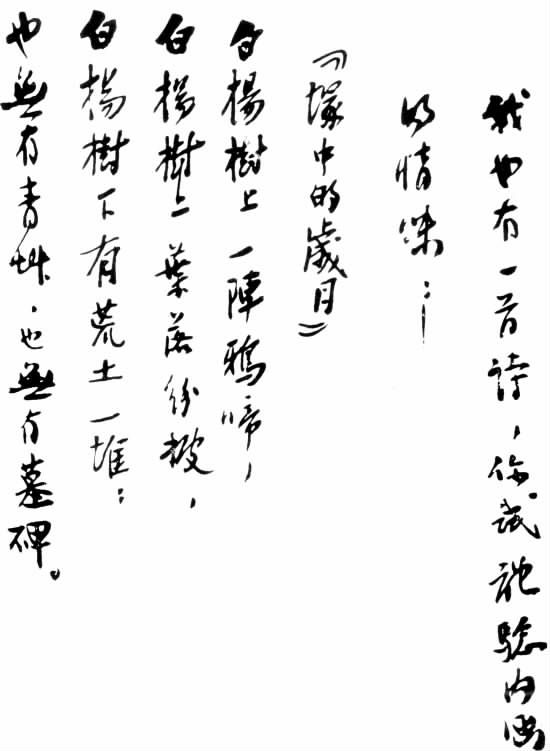 我也有一首詩，你試體驗內涵
的情味：—
《塚中的歲月》
白楊樹上一陣鴉啼，
白楊樹上葉落紛披，
白楊樹下有荒土一堆：
也無有青草，也無有墓碑。